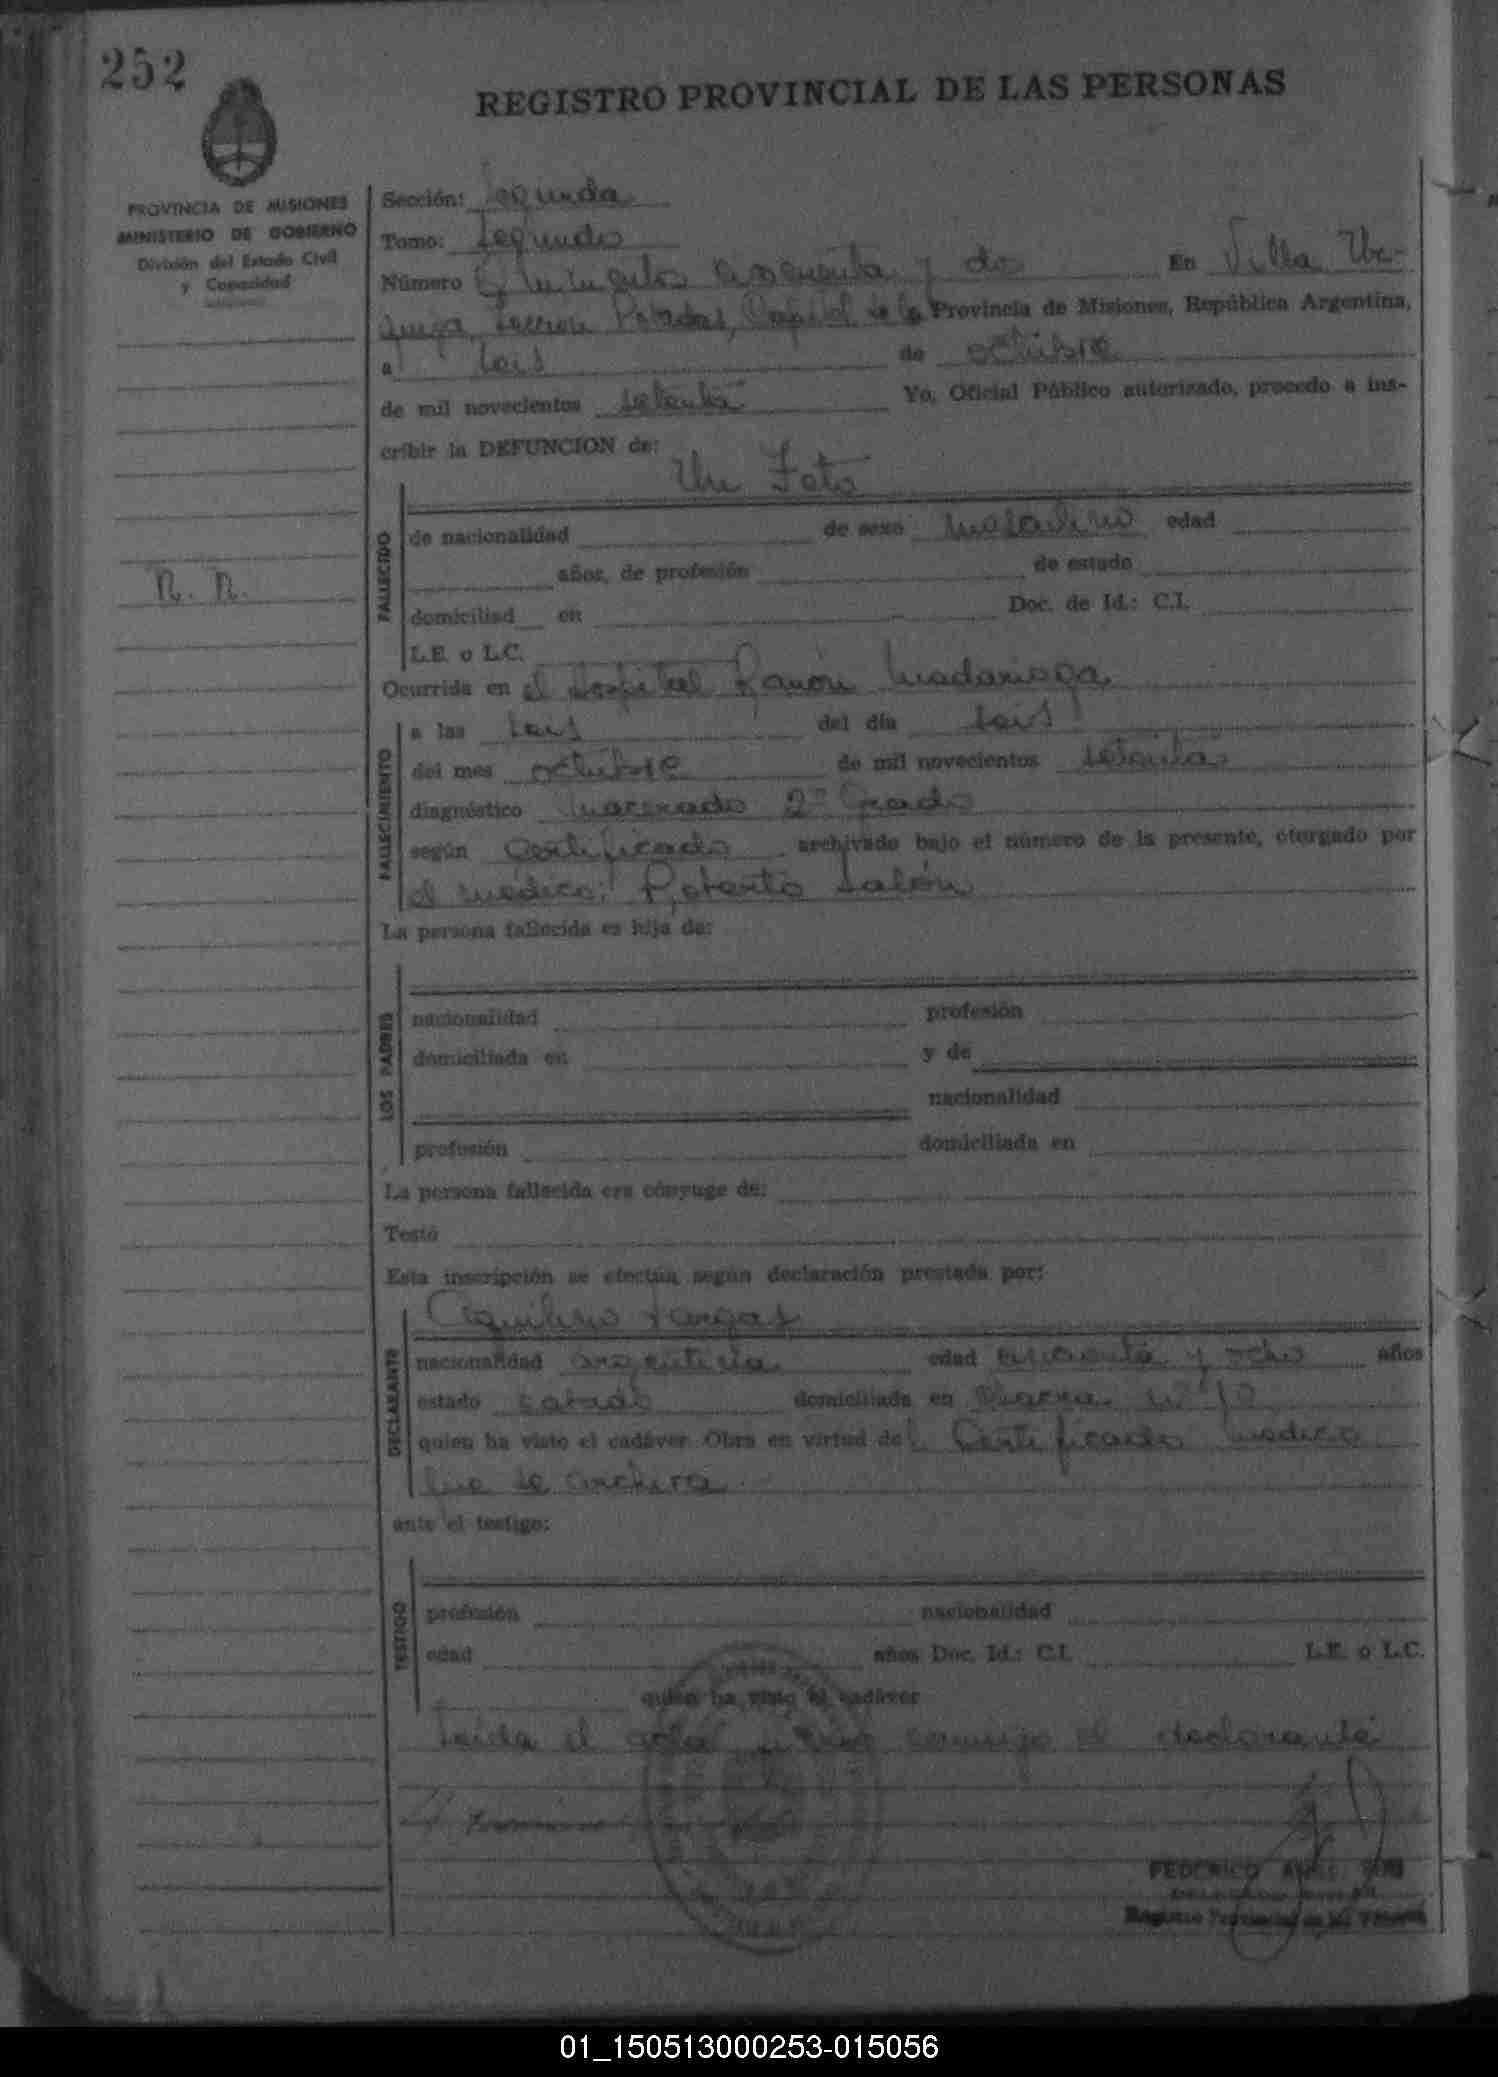 252
REGISTRO PROVINCIAL DE LAS PERSONAS
PROVINCIA DE MISIONES
MINISTERIO DE GOBIERNO
División del Estado Civil
y Capacidad
Sección: Segunda
Tomo: Segundo
Número Quinientos cincuenta y dos En Villa Ur-
quiza, Sección Posadas, Capital de la Provincia de Misiones, República Argentina,
a seis de octubre
de mil novecientos setenta Yo, Oficial Público autorizado, procedo a ins-
cribir la DEFUNCION de:
Un Feto
FALLECIDO
de nacionalidad de sexo masculino edad
años, de profesión de estado
N. N.
domiciliad en Doc. de Id.: C.I.
L.E. o L.C.
Ocurrida en el Hospital Ramón Madariaga
FALLECIMIENTO
a las seis del día seis
del mes octubre de mil novecientos setenta
diagnóstico Macerado 2º Grado
según Certificado archivado bajo el número de la presente, otorgado por
el médico: Roberto Salón
La persona fallecida es hija de:
LOS PADRES
nacionalidad profesión
domiciliada en y de
nacionalidad
profesión domiciliada en
La persona fallecida era cónyuge de:
Testó
Esta inscripción se efectúa según declaración prestada por:
Aquilino Vargas
DECLARANTE
nacionalidad argentina edad cincuenta y ocho años
estado casado domiciliada en Chacra nº 10
quien ha visto el cadáver. Obra en virtud del Certificado médico
que se archiva
ante el testigo:
TESTIGO
profesión nacionalidad
edad años Doc. Id.: C.I. L.E. o L.C.
quien ha visto el cadáver
Leída el acta firma conmigo el declarante
FEDERICO
Registro Provincial de las Personas
01_150513000253-015056